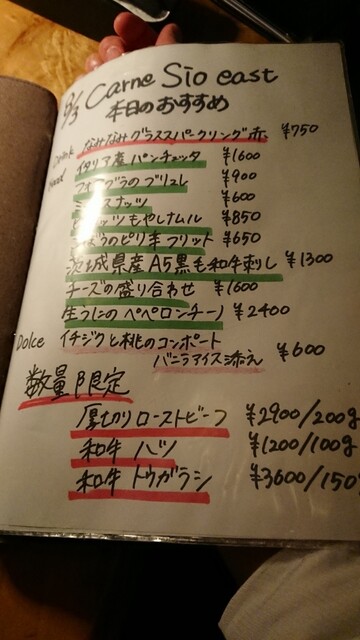 9/3 Carne Sio east
本日のおすすめ
Drink なみなみグラススパークリング赤 ¥750
Food イタリア産パンチェッタ ¥1600
フォアグラのブリュレ ¥900
ミックスナッツ ¥600
ナッツもやしナムル ¥850
ごぼうのピリ辛フリット ¥650
茨城県産A5黒毛和牛刺し ¥1300
チーズの盛り合わせ ¥1600
生うにのペペロンチーノ ¥2400
Dolce イチジクと桃のコンポート
バニラアイス添え ¥600
数量限定
厚切りローストビーフ ¥2900/200g
和牛ハツ ¥1200/100g
和牛トウガラシ ¥3600/150